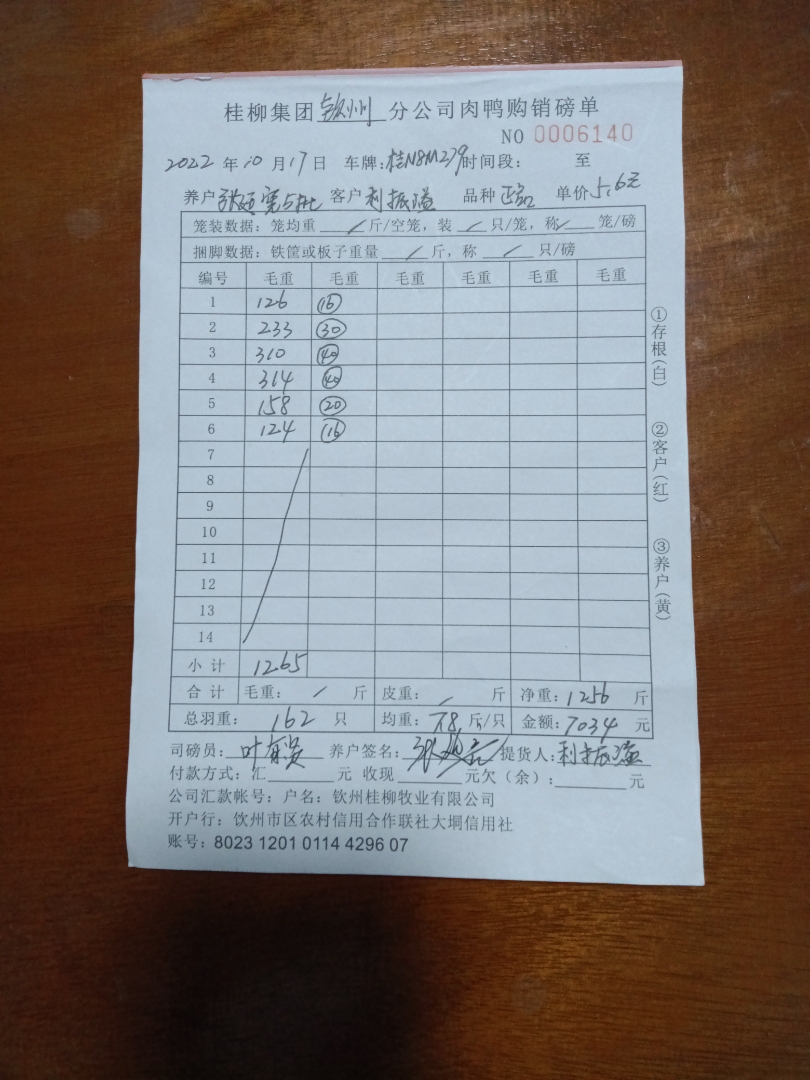 桂柳集团钦州分公司肉鸭购销磅单
NO 0006140
2022年10月17日 车牌:桂N8M279 时间段: 至
养户 第5批 客户 利振溢 品种 正品 单价 5.6元
笼装数据:笼均重 / 斤/空笼,装 / 只/笼,称 / 笼/磅
捆脚数据:铁筐或板子重量 / 斤,称 / 只/磅
编号 毛重 毛重 毛重 毛重 毛重 毛重
1 126 16
2 233 30
3 310 40
4 314 40
5 158 20
6 124 16
7
8
9
10
11
12
13
14
小计 1265
合计 毛重: / 斤 皮重: / 斤 净重:1256 斤
总羽重: 162 只 均重:7.8 斤/只 金额:7034 元
司磅员: 叶 养户签名: 提货人:利振溢
付款方式:汇 元 收现 元欠(余): 元
公司汇款帐号:户名:钦州桂柳牧业有限公司
开户行:钦州市区农村信用合作联社大垌信用社
账号:8023 1201 0114 4296 07
①存根(白)
②客户(红)
③养户(黄)